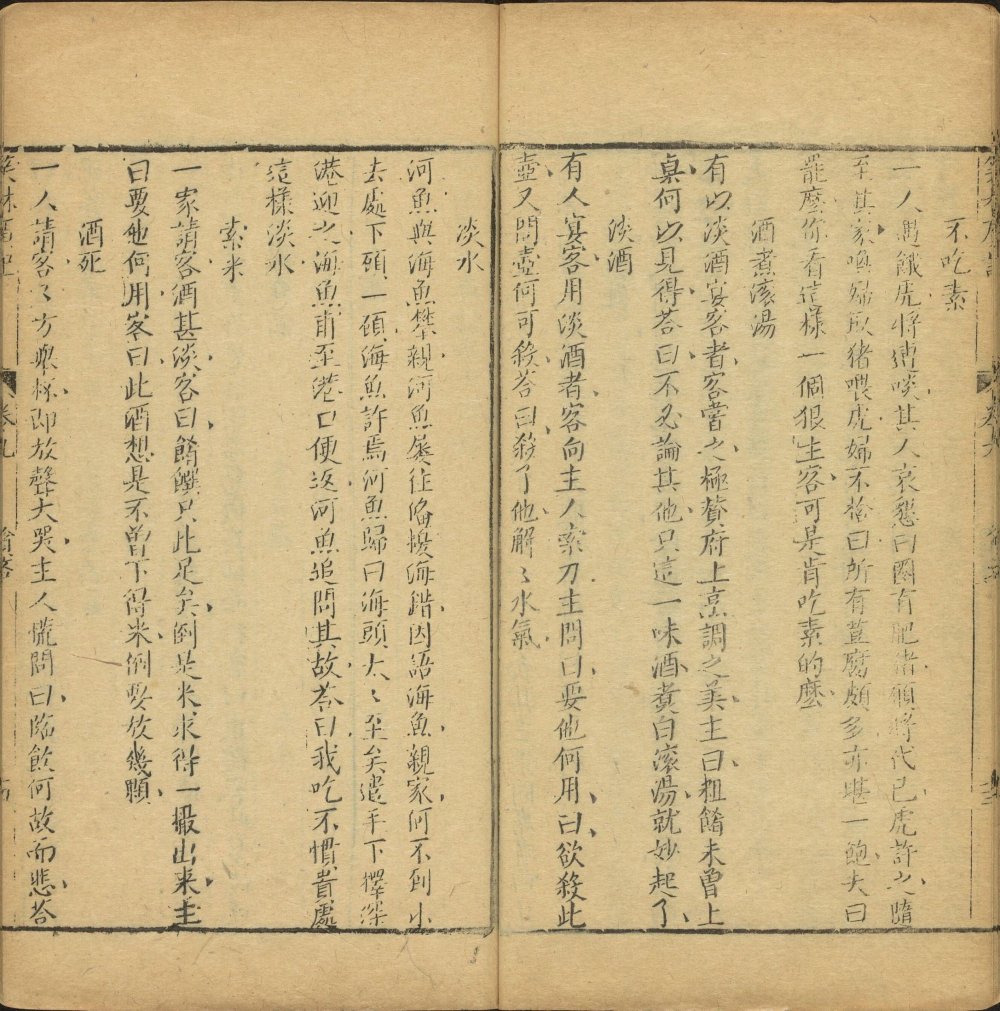 不吃素
一人遇餓虎將遭啖其人哀懇曰圈有肥猪願將代己虎許之隨
至其家喚婦取猪喂虎婦不捨曰所有荳腐頗多亦堪一飽夫曰
罷麽你看這樣一個狠主客可是肯吃素的麽
酒煮滚湯
有以淡酒宴客者客嘗之極贊府上烹調之美主曰粗餚未曾上
桌何以見得答曰不必論其他只這一味酒煮白滚湯就妙起了
淡酒
有人宴客用淡酒者客向主人索刀主問曰要他何用曰欲殺此
壺又問壺何可殺答曰殺了他解〻水氣
淡水
河魚與海魚攀親河魚屢往俻擾海錯因語海魚親家何不到小
去處下頭一頋海魚許焉河魚歸曰海頭太〻至矣遣手下擇深
港迎之海魚甫至港口便返河魚追問其故答曰我吃不慣貴處
這樣淡水
索米
一家請客酒甚淡客曰餚饌只此足矣倒是米求得一撮出来主
曰要他何用客曰此酒想是不曽下得米倒要放幾顆
酒死
一人請客〻方舉杯即放聲大哭主人慌問曰臨飲何故而悲答
卷九